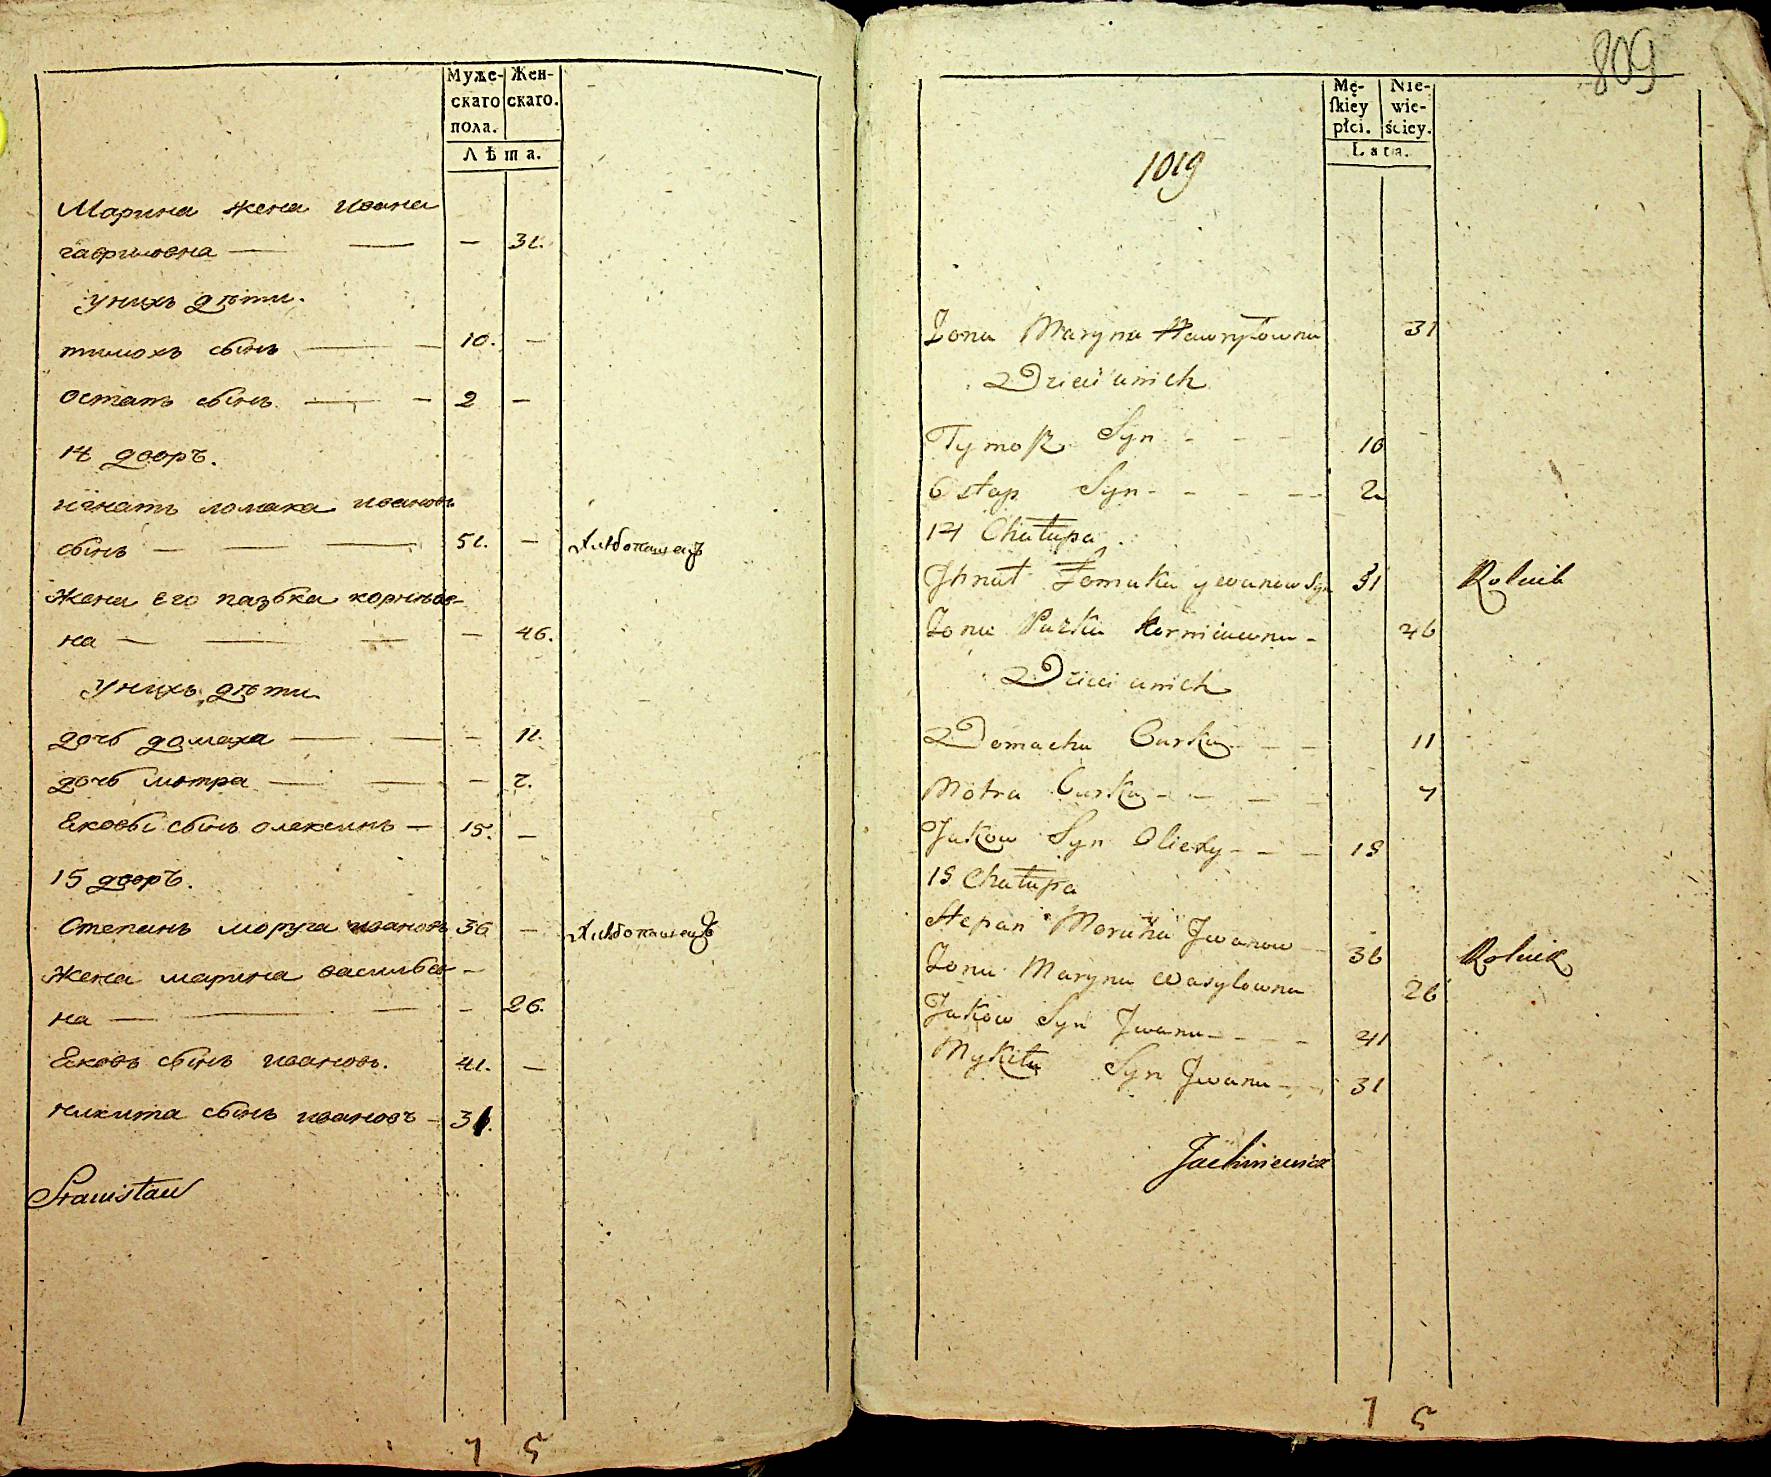 Муже- Жен-
скаго скаго.
пола.
Лѣта.
Марина жена ивана
гавриловна — — — 31.
унихъ дѣти.
тимохъ сынъ — — 10. —
остапъ сынъ — — 2 —
14 дворъ.
игнатъ ломака ивановъ
сынъ — — — 51. — Хлѣбопашецъ
Жена его пазька корнѣев-
на — — — — 46.
унихъ дѣти
дочь домаха — — — 11.
дочь мотра — — — 7.
Яковъ сынъ олексинъ — 15. —
15 дворъ.
Степанъ моруга ивановъ 36 — Хлѣбопашецъ
Жена марина васильев-
на — — — — 26.
Яковъ сынъ ивановъ. 41. —
никита сынъ ивановъ — 31.
Stanisław
809
Mę- Nie-
ſkiey wie-
płci. ściey.
Lata.
1019
Żona Maryna Hawryłowna 31
Dzieci unich
Tymosz Syn - - - 10 -
Ostap Syn - - - - 2
14 Chałupa.
Jhnat Łomaka ywanow Syn 51 Rolnik
Żona Pazka Korniiewna - 46
Dzieci unich
Domacha Curka - - - 11
Motra Curka - - - - 7
Jakow Syn Olexy - - - 15
15 Chałupa
Stepan Moruha Jwanow 36 Rolnik
Żona Maryna Wasylowna 26
Jakow Syn Jwana - - - - 41
Mykita Syn Jwana - - - 31
Jachimowicz
7 5
7 5